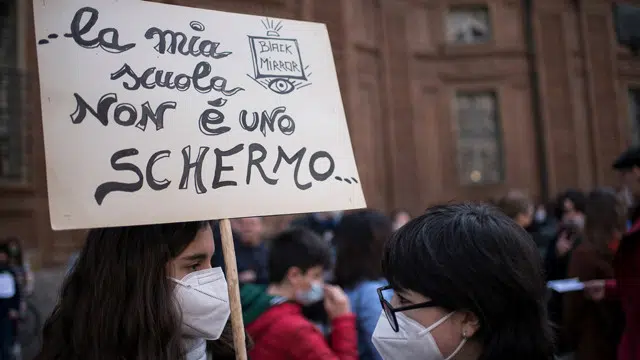 ...la mia
scuola
NON è uno
SCHERMO...
BLACK
MIRROR